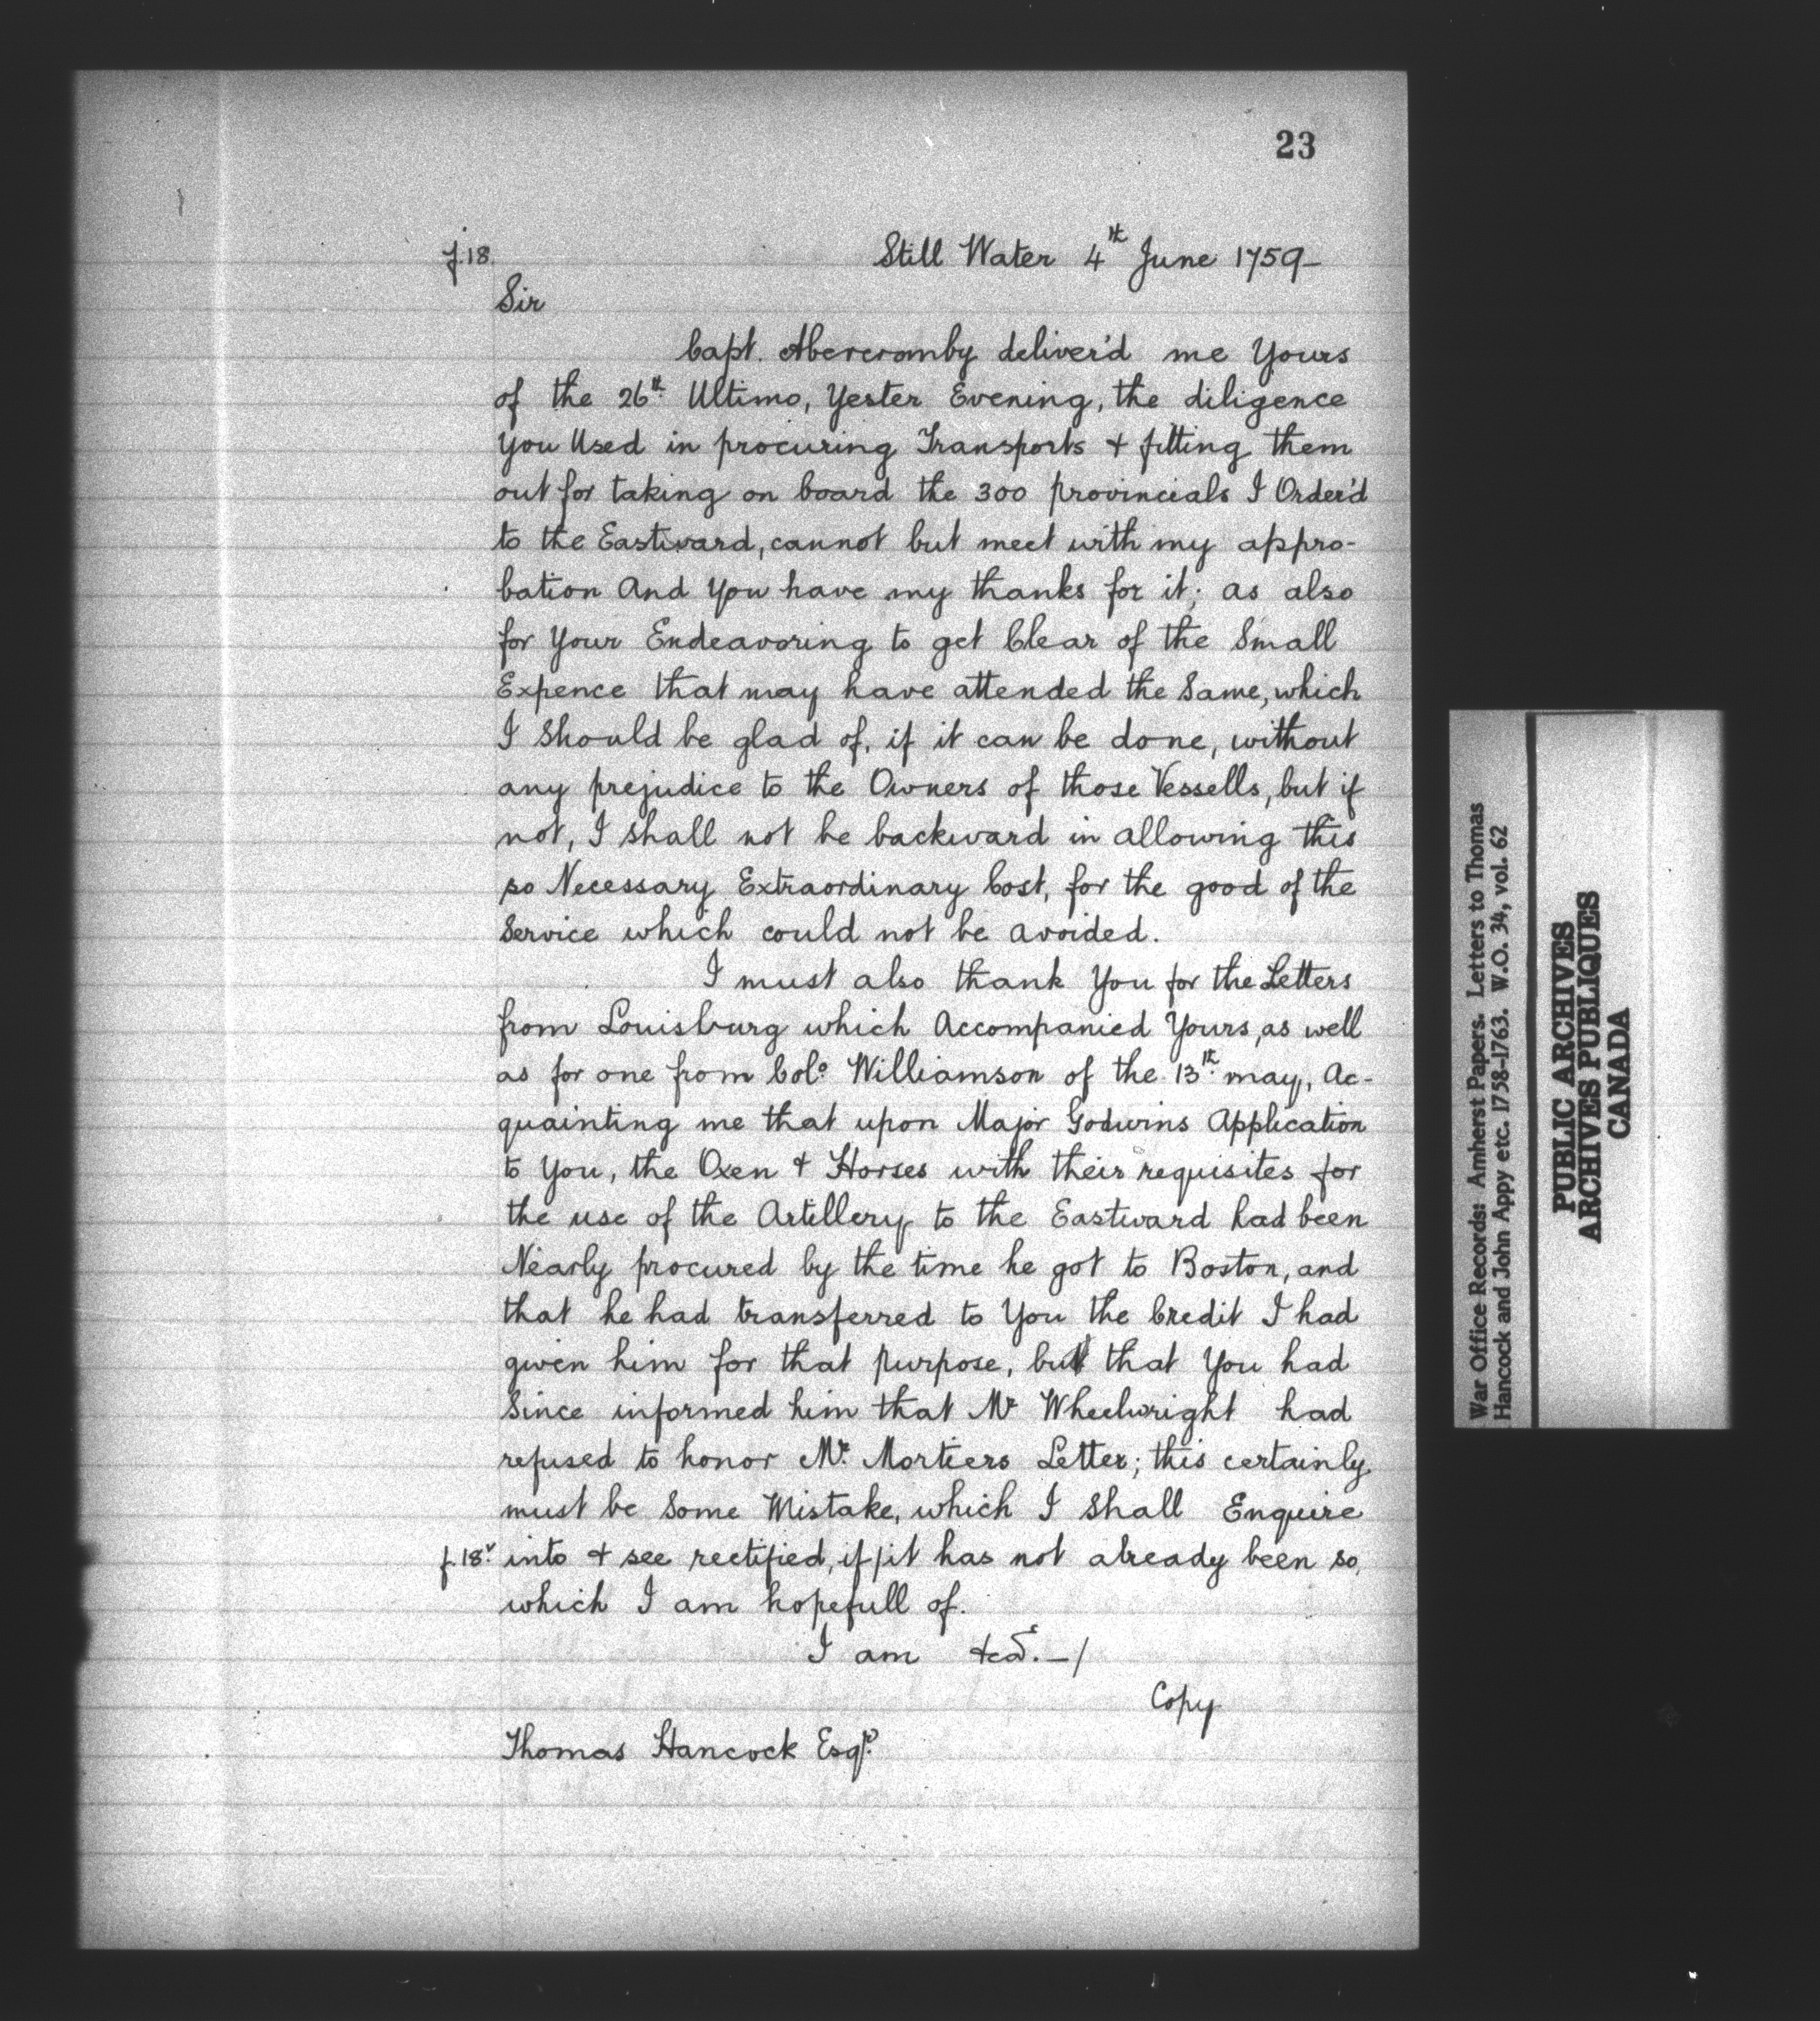 23
f.18. Still Water 4th June 1759-
Sir
Capt. Abercromby deliver'd me Yours
of the 26th Ultimo, Yester Evening, the diligence
You Used in procuring Transports + fitting them
out for taking on board the 300 provincials I Order'd
to the Eastward, cannot but meet with my appro-
bation And You have my thanks for it; as also
for Your Endeavoring to get Clear of the Small
Expence that may have attended the Same, which
I Should be glad of, if it can be done, without
any prejudice to the Owners of those Vessells, but if
not, I Shall not be backward in allowing this
so Necessary Extraordinary Cost, for the good of the
Service which could not be avoided.
I must also thank You for the Letters
from Louisburg which Accompanied Yours, as well
as for one from Colo. Williamson of the 13th may, Ac-
quainting me that upon Major Godwins Application
to You, the Oxen + Horses with their requisites for
the use of the Artillery to the Eastward had been
Nearly procured by the time he got to Boston, and
that he had transferred to You the Credit I had
given him for that purpose, but that You had
Since informed him that Mr Wheelwright had
refused to honor Mr. Mortiers Letter; this certainly
must be Some Mistake, which I Shall Enquire
f.18v into + see rectified, if/it has not already been so,
which I am hopefull of.
I am +ca.-/
Copy
Thomas Hancock Esqr.
War Office Records: Amherst Papers. Letters to Thomas
Hancock and John Appy etc. 1758-1763. W.O. 34, vol. 62
PUBLIC ARCHIVES
ARCHIVES PUBLIQUES
CANADA